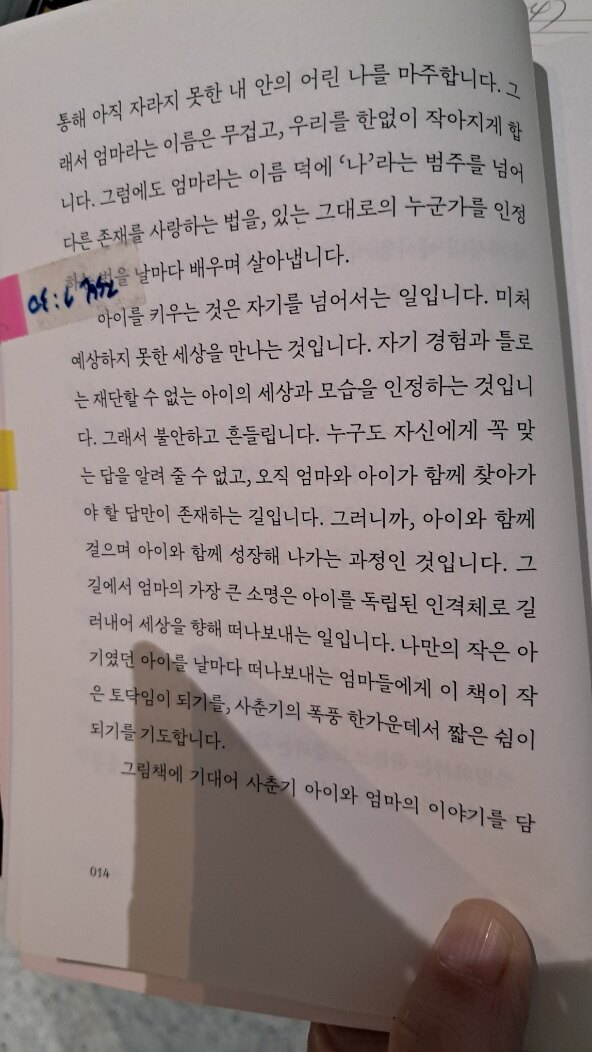 통해 아직 자라지 못한 내 안의 어린 나를 마주합니다. 그
래서 엄마라는 이름은 무겁고, 우리를 한없이 작아지게 합
니다. 그럼에도 엄마라는 이름 덕에 ‘나’라는 범주를 넘어
다른 존재를 사랑하는 법을, 있는 그대로의 누군가를 인정
하는 법을 날마다 배우며 살아냅니다.
아이를 키우는 것은 자기를 넘어서는 일입니다. 미처
예상하지 못한 세상을 만나는 것입니다. 자기 경험과 틀로
는 재단할 수 없는 아이의 세상과 모습을 인정하는 것입니
다. 그래서 불안하고 흔들립니다. 누구도 자신에게 꼭 맞
는 답을 알려 줄 수 없고, 오직 엄마와 아이가 함께 찾아가
야 할 답만이 존재하는 길입니다. 그러니까, 아이와 함께
걸으며 아이와 함께 성장해 나가는 과정인 것입니다. 그
길에서 엄마의 가장 큰 소명은 아이를 독립된 인격체로 길
러내어 세상을 향해 떠나보내는 일입니다. 나만의 작은 아
기였던 아이를 날마다 떠나보내는 엄마들에게 이 책이 작
은 토닥임이 되기를, 사춘기의 폭풍 한가운데서 짧은 쉼이
되기를 기도합니다.
그림책에 기대어 사춘기 아이와 엄마의 이야기를 담
014